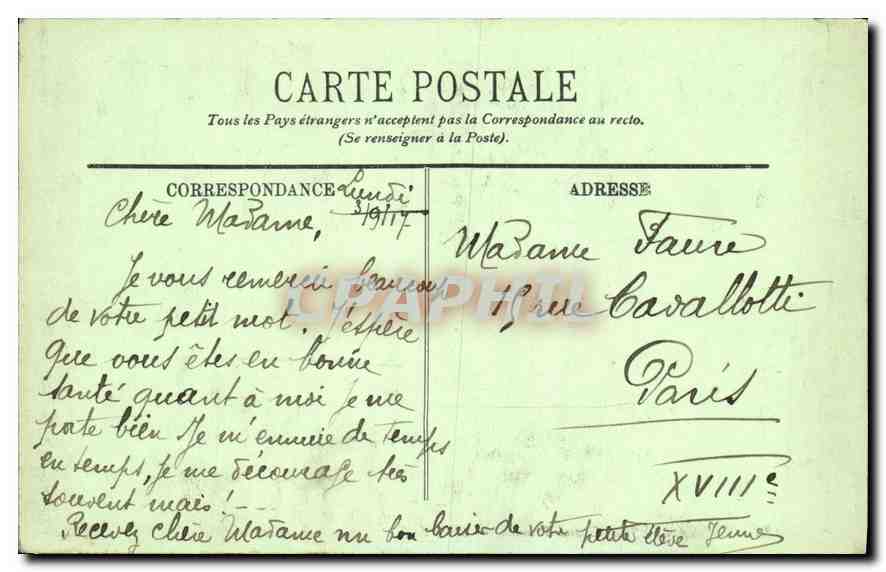 CARTE POSTALE
Tous les Pays étrangers n'acceptent pas la Correspondance au recto.
(Se renseigner à la Poste).
CORRESPONDANCE
Lundi
3/9/17
Chère Madame,
Je vous remercie beaucoup
de votre petit mot. J'espère
que vous êtes en bonne
santé quant à moi je me
porte bien. Je m'ennuie de temps
en temps, je me décourage très
souvent mais!---
Recevez chère Madame un bon baiser de votre petite élève
ADRESSE
Madame Faure
rue Cavallotti
Paris
XVIIIe
CPAPHIL